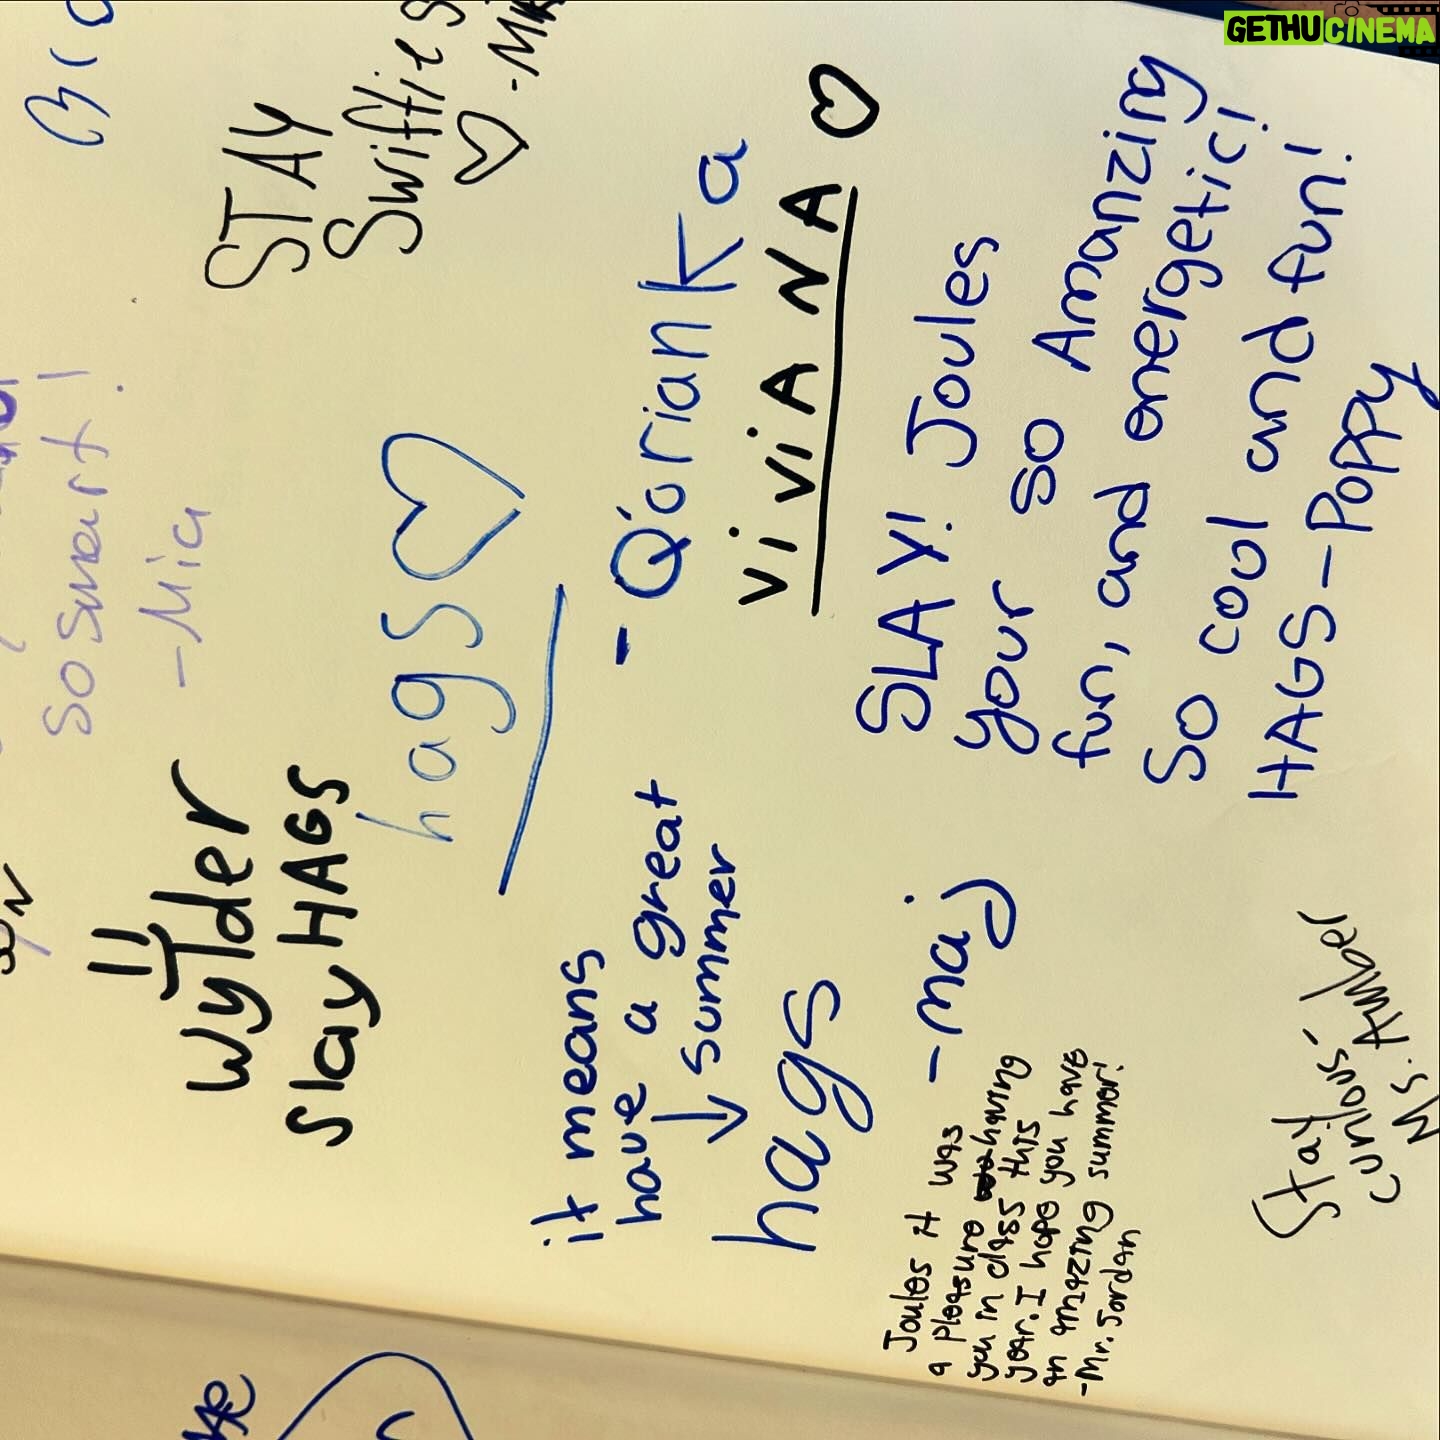 GETHUCINEMA
so smart!
-Mia
STAY
Swiftie
wylder
slay HAGS
hags
- Q'orianka
ViViANA
it means
have a great
summer
hags
-maj
SLAY! Joules
your so Amanzing
fun, and energetic!
So cool and fun!
HAGS-Poppy
Joules it was
a pleasure having
you in class this
year. I hope you have
an amazing summer!
-Mr. Jordan
Stay
curious
Ms. Amber